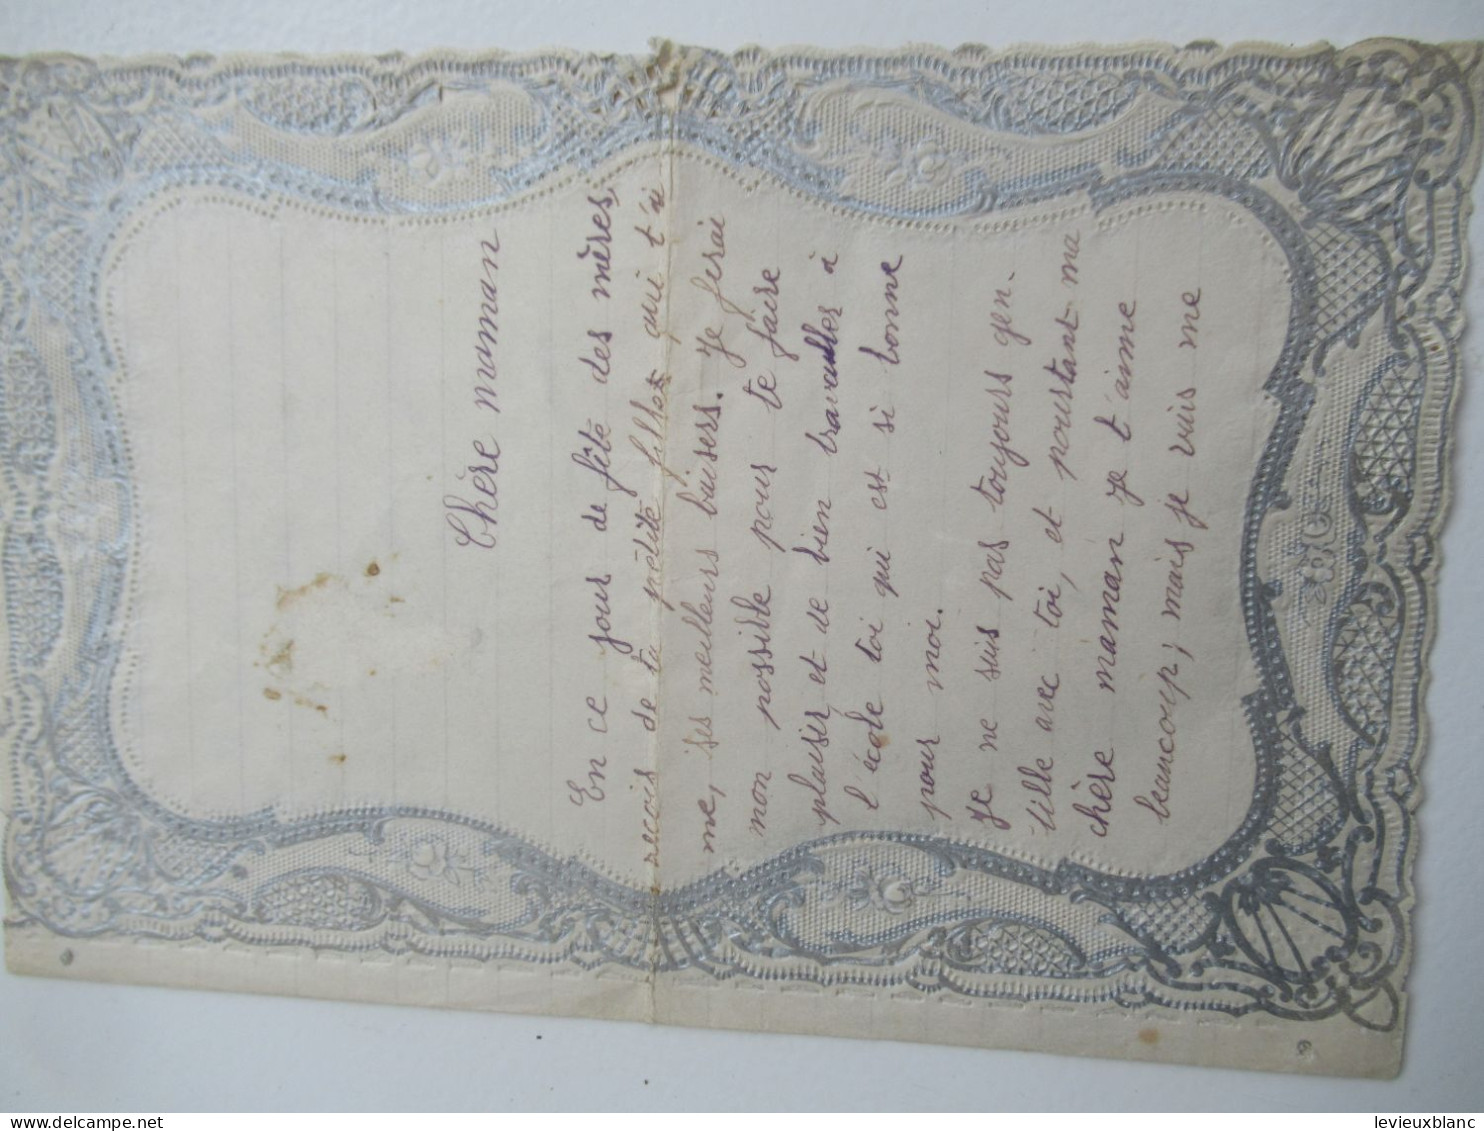 Chère maman
En ce jour de fête des mères,
reçois de ta pétite fillet qui t'a
me, ses meilleurs baisers. Je ferai
mon possible pour te faire
plaisir et de bien travailler à
l'école toi qui est si bonne
pour moi.
Je ne suis pas toujours gen-
tille avec toi, et pourtant ma
chère maman je t'aime
beaucoup; mais je suis me
levieuxblanc
delcampe.net